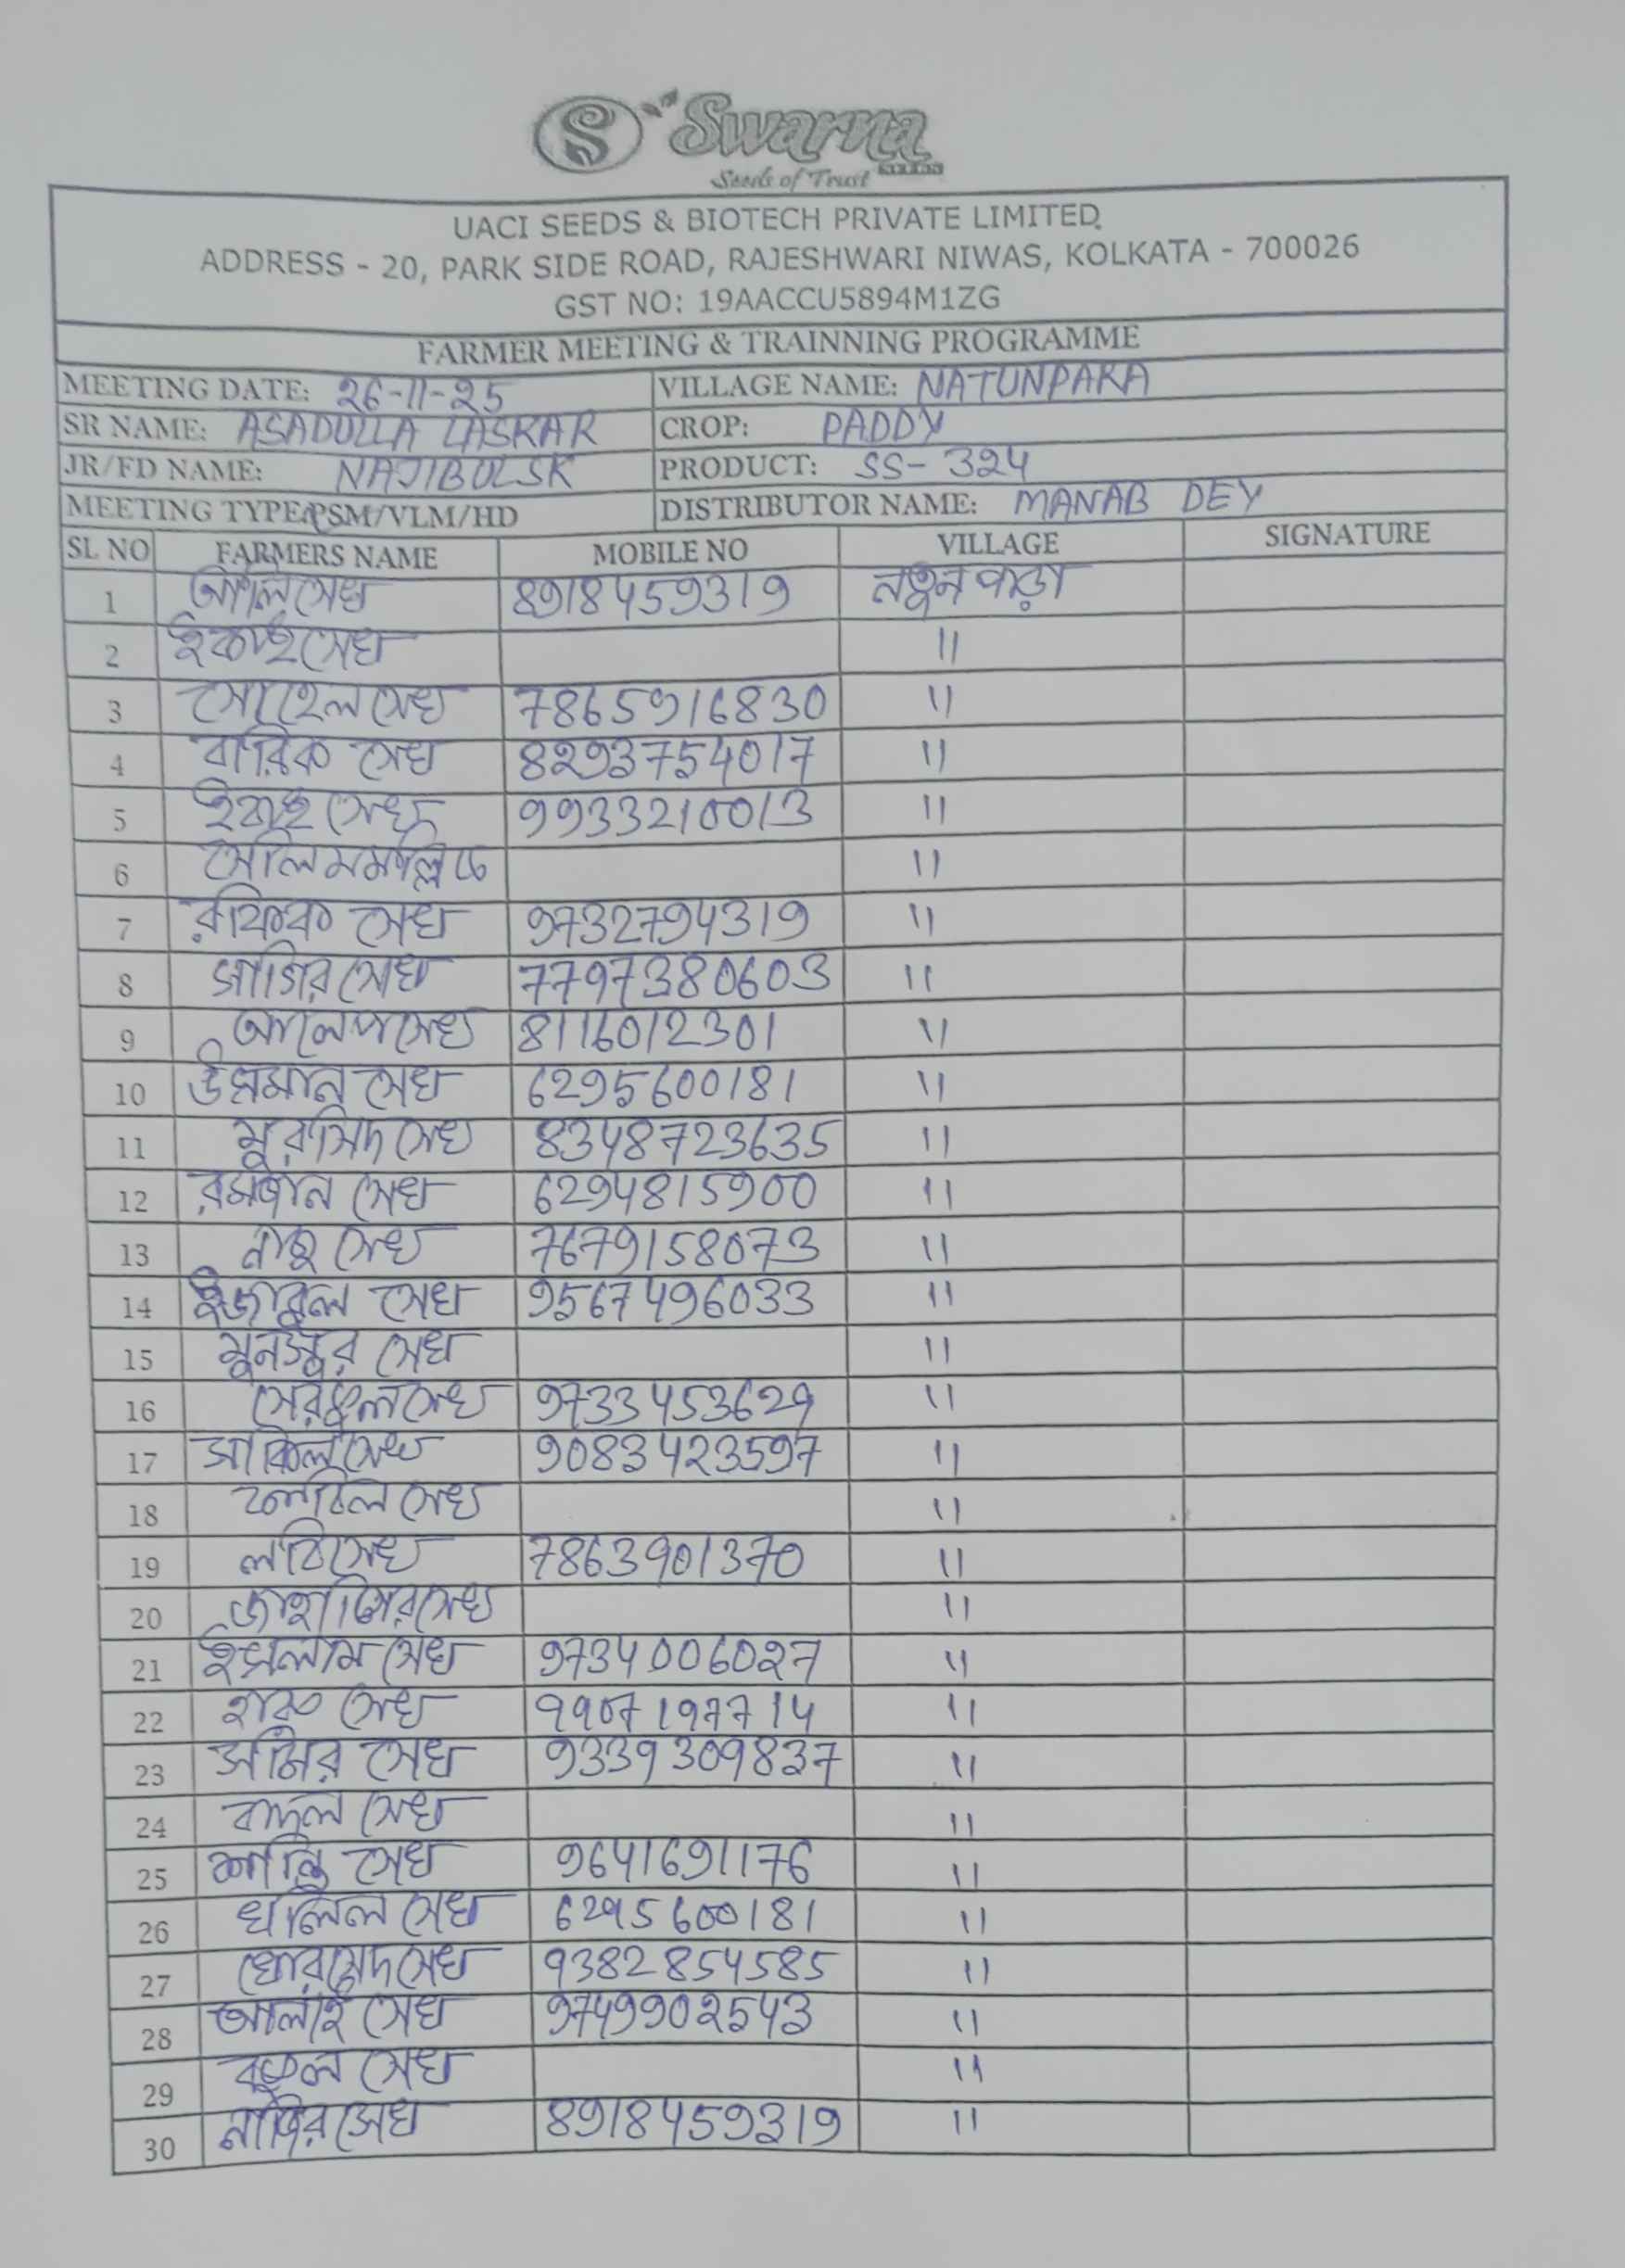 S Swarna
Seeds of Trust
UACI SEEDS & BIOTECH PRIVATE LIMITED.
ADDRESS - 20, PARK SIDE ROAD, RAJESHWARI NIWAS, KOLKATA - 700026
GST NO: 19AACCU5894M1ZG
FARMER MEETING & TRAINNING PROGRAMME
MEETING DATE: 26-11-25 VILLAGE NAME: NATUNPARA
SR NAME: ASADULLA LASKAR CROP: PADDY
JR/FD NAME: NAJIBUL SK PRODUCT: SS-324
MEETING TYPE/PSM/VLM/HD DISTRIBUTOR NAME: MANAB DEY
SL NO FARMERS NAME MOBILE NO VILLAGE SIGNATURE
1 সেখ 8918459319 নতুন পাড়া
2 সেখ "
3 সোহেল সেখ 7865916830 "
4 বারিক সেখ 8293754017 "
5 সেখ 9933210013 "
6 সেলিম মল্লিক "
7 রফিক সেখ 9732794319 "
8 সাগির সেখ 7797380603 "
9 আলেপ সেখ 8116012301 "
10 উসমান সেখ 6295600181 "
11 মুরসিদ সেখ 8348723635 "
12 রমজান সেখ 6294815900 "
13 সেখ 7679158073 "
14 ইজাবুল সেখ 9567496033 "
15 মুনসুর সেখ "
16 সেরফুল সেখ 9733453629 "
17 সাকিল সেখ 9083423597 "
18 সেখ "
19 সেখ 7863901370 "
20 সেখ "
21 ইসলাম সেখ 9734006027 "
22 সেখ 9907197714 "
23 সেখ 9339309837 "
24 বাদল সেখ "
25 সেখ 9641691176 "
26 খলিল সেখ 6295600181 "
27 খোরসেদ সেখ 9382854585 "
28 আলাই সেখ 9749902543 "
29 সেখ "
30 সেখ 8918459319 "